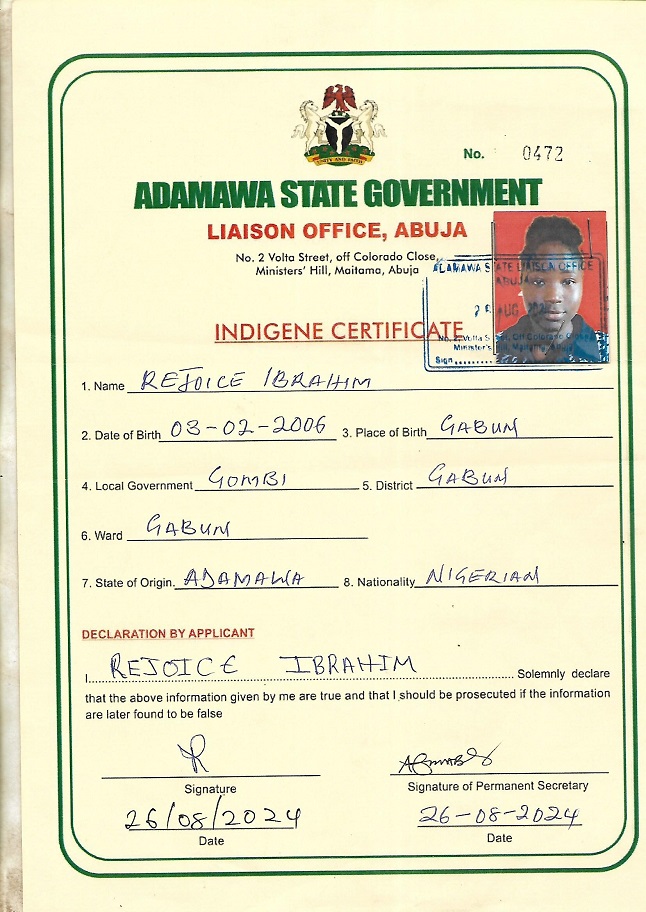 UNITY AND FAITH
No. 0472
ADAMAWA STATE GOVERNMENT
LIAISON OFFICE, ABUJA
No. 2 Volta Street, off Colorado Close,
Ministers' Hill, Maitama, Abuja
ADAMAWA STATE LIAISON OFFICE
ABUJA
AUG
No. 2, Volta Street, Off Colorado Close
Minister's Hill, Maitama, Abuja
Sign
INDIGENE CERTIFICATE
1. Name REJOICE IBRAHIM
2. Date of Birth 03-02-2006 3. Place of Birth GABUN
4. Local Government GOMBI 5. District GABUN
6. Ward GABUN
7. State of Origin. ADAMAWA 8. Nationality NIGERIAN
DECLARATION BY APPLICANT
I REJOICE IBRAHIM Solemnly declare
that the above information given by me are true and that I should be prosecuted if the information
are later found to be false
Signature Signature of Permanent Secretary
26/08/2024 26-08-2024
Date Date